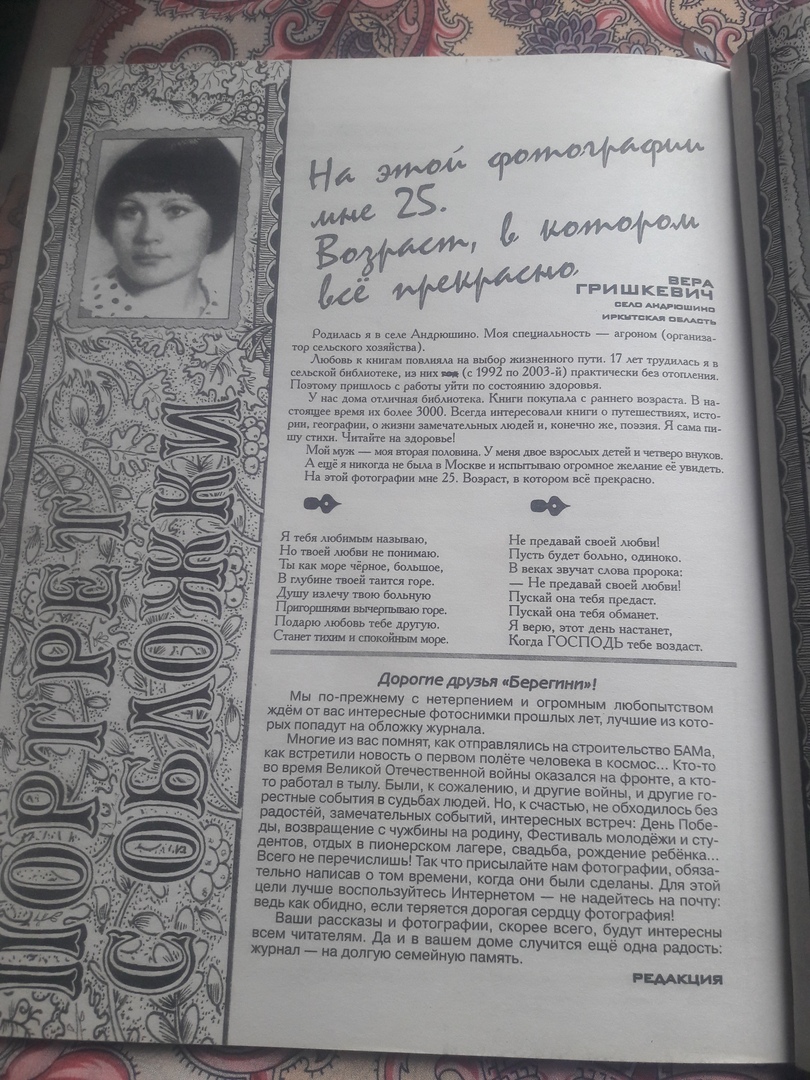 ПОРТРЕТ
С ОБЛОЖКИ
На этой фотографии
мне 25.
Возраст, в котором
всё прекрасно
ВЕРА
ГРИШКЕВИЧ
СЕЛО АНДРЮШИНО
ИРКУТСКАЯ ОБЛАСТЬ
Родилась я в селе Андрюшино. Моя специальность — агроном (организа-
тор сельского хозяйства).
Любовь к книгам повлияла на выбор жизненного пути. 17 лет трудилась я в
сельской библиотеке, из них (с 1992 по 2003-й) практически без отопления.
Поэтому пришлось с работы уйти по состоянию здоровья.
У нас дома отличная библиотека. Книги покупала с раннего возраста. В на-
стоящее время их более 3000. Всегда интересовали книги о путешествиях, исто-
рии, географии, о жизни замечательных людей и, конечно же, поэзия. Я сама пи-
шу стихи. Читайте на здоровье!
Мой муж — моя вторая половина. У меня двое взрослых детей и четверо внуков.
А ещё я никогда не была в Москве и испытываю огромное желание её увидеть.
На этой фотографии мне 25. Возраст, в котором всё прекрасно.
Я тебя любимым называю,
Но твоей любви не понимаю.
Ты как море чёрное, большое,
В глубине твоей таится горе.
Душу излечу твою больную
Пригоршнями вычерпываю горе.
Подарю любовь тебе другую.
Станет тихим и спокойным море.
Не предавай своей любви!
Пусть будет больно, одиноко.
В веках звучат слова пророка:
— Не предавай своей любви!
Пускай она тебя предаст.
Пускай она тебя обманет.
Я верю, этот день настанет,
Когда ГОСПОДЬ тебе воздаст.
Дорогие друзья «Берегини»!
Мы по-прежнему с нетерпением и огромным любопытством
ждём от вас интересные фотоснимки прошлых лет, лучшие из кото-
рых попадут на обложку журнала.
Многие из вас помнят, как отправлялись на строительство БАМа,
как встретили новость о первом полёте человека в космос... Кто-то
во время Великой Отечественной войны оказался на фронте, а кто-
то работал в тылу. Были, к сожалению, и другие войны, и другие го-
рестные события в судьбах людей. Но, к счастью, не обходилось без
радостей, замечательных событий, интересных встреч: День Побе-
ды, возвращение с чужбины на родину, Фестиваль молодёжи и сту-
дентов, отдых в пионерском лагере, свадьба, рождение ребёнка...
Всего не перечислишь! Так что присылайте нам фотографии, обяза-
тельно написав о том времени, когда они были сделаны. Для этой
цели лучше воспользуйтесь Интернетом — не надейтесь на почту:
ведь как обидно, если теряется дорогая сердцу фотография!
Ваши рассказы и фотографии, скорее всего, будут интересны
всем читателям. Да и в вашем доме случится ещё одна радость:
журнал — на долгую семейную память.
РЕДАКЦИЯ